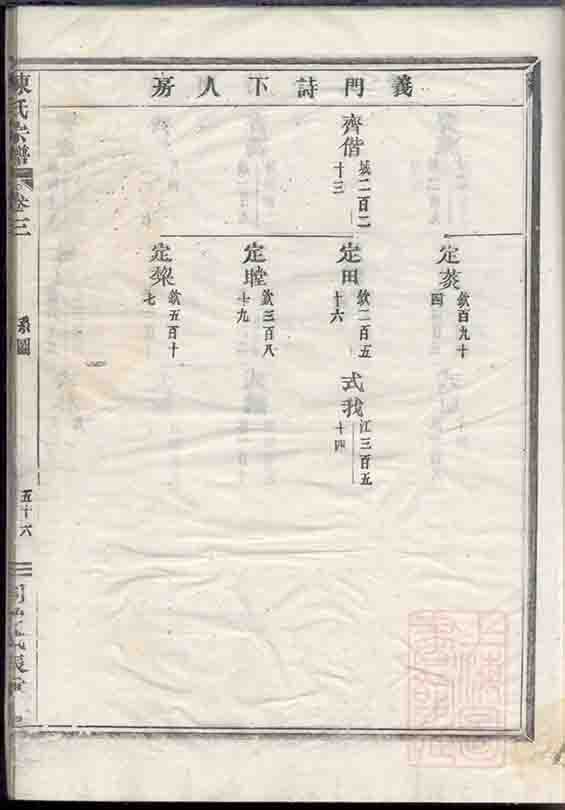 義門詩下人房
齊偕
城二百二
十三
定菼
欽百九十
四
定田
欽二百五
十六
式我
江三百五
十四
定瞠
欽三百八
十九
定槊
欽五百十
七
陳氏宗譜
卷三
系圖
五十六